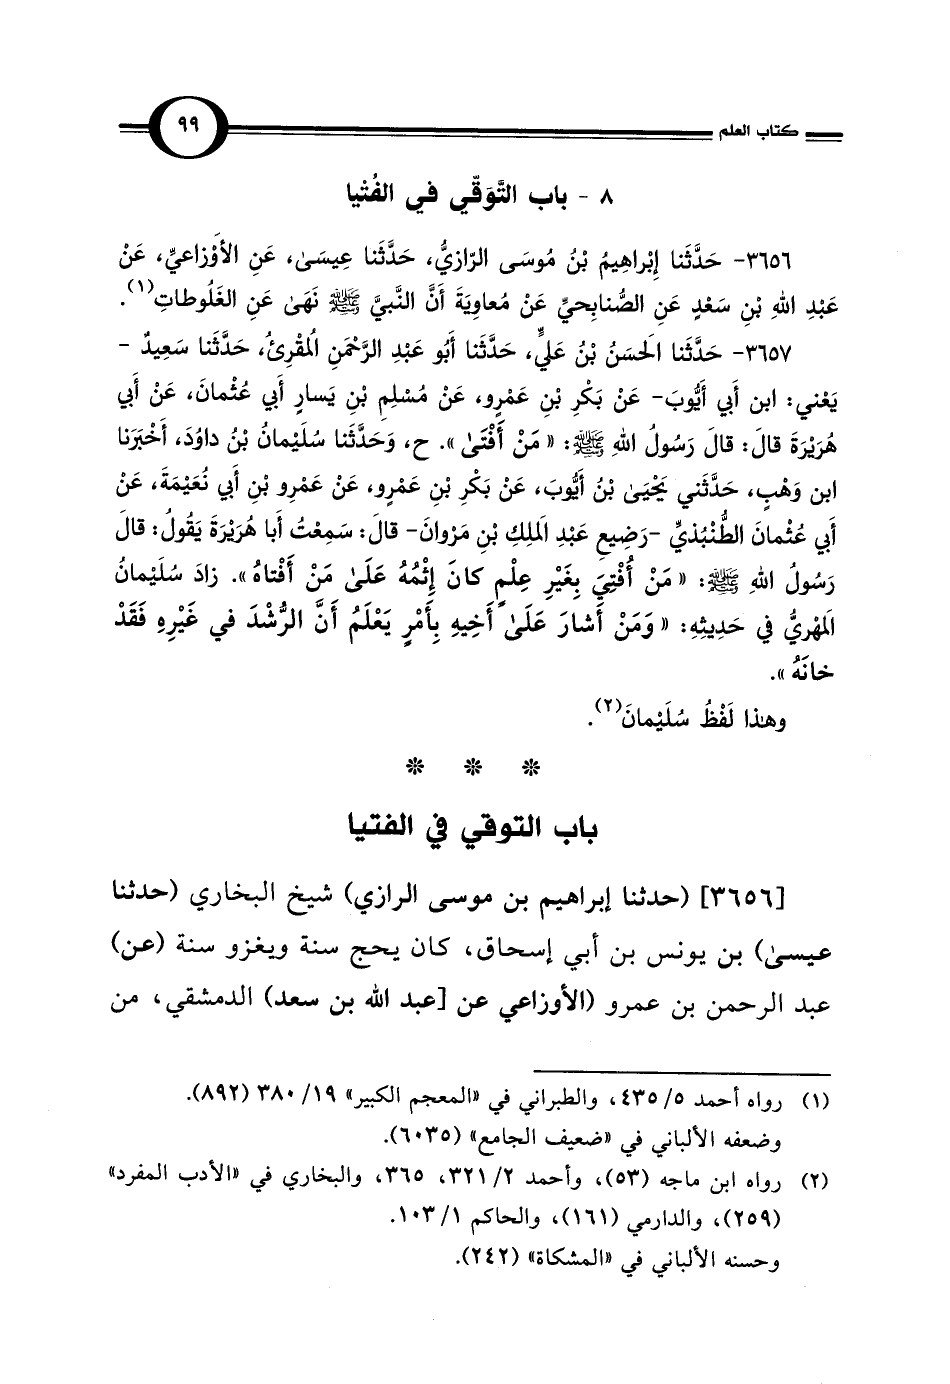 كتاب العلم ٩٩
٨ - باب التَّوَقِّي في الفُتْيا
٣٦٥٦- حَدَّثَنا إِبْراهِيمُ بْنُ مُوسَى الرّازِيُّ، حَدَّثَنا عِيسَىٰ، عَنِ الأَوْزاعِيِّ، عَنْ
عَبْدِ اللهِ بْنِ سَعْدٍ عَنِ الصُّنابِحِيِّ عَنْ مُعاوِيَةَ أَنَّ النَّبِيَّ ﷺ نَهَىٰ عَنِ الغَلُوطاتِ(١).
٣٦٥٧- حَدَّثَنا الحَسَنُ بْنُ عَلِيٍّ، حَدَّثَنا أَبُو عَبْدِ الرَّحْمَنِ المُقْرِئُ، حَدَّثَنا سَعِيدٌ -
يَعْني: ابن أَبي أَيُّوبَ- عَنْ بَكْرِ بْنِ عَمْرٍو، عَنْ مُسْلِمِ بْنِ يَسارٍ أَبي عُثْمانَ، عَنْ أَبي
هُرَيْرَةَ قالَ: قالَ رَسُولُ اللهِ ﷺ: « مَنْ أَفْتَىٰ ». ح، وَحَدَّثَنا سُلَيْمانُ بْنُ داوُدَ، أَخْبَرَنا
ابن وَهْبٍ، حَدَّثَني يَحْيَىٰ بْنُ أَيُّوبَ، عَنْ بَكْرِ بْنِ عَمْرٍو، عَنْ عَمْرِو بْنِ أَبي نُعَيْمَةَ، عَنْ
أَبي عُثْمانَ الطُّنْبُذيِّ -رَضِيعِ عَبْدِ المَلِكِ بْنِ مَرْوانَ- قالَ: سَمِعْتُ أَبا هُرَيْرَةَ يَقُولُ: قالَ
رَسُولُ اللهِ ﷺ: « مَنْ أُفْتِيَ بِغَيْرِ عِلْمٍ كانَ إِثْمُهُ عَلَىٰ مَنْ أَفْتاهُ ». زادَ سُلَيْمانُ
المَهْرِيُّ في حَدِيثِهِ: « وَمَنْ أَشارَ عَلَىٰ أَخِيهِ بِأَمْرٍ يَعْلَمُ أَنَّ الرُّشْدَ في غَيْرِهِ فَقَدْ
خانَهُ ».
وهٰذا لَفْظُ سُلَيْمانَ(٢).
* * *
باب التوقي في الفتيا
[٣٦٥٦] (حدثنا إبراهيم بن موسى الرازي) شيخ البخاري (حدثنا
عيسىٰ) بن يونس بن أبي إسحاق، كان يحج سنة ويغزو سنة (عن)
عبد الرحمن بن عمرو (الأوزاعي عن [عبد الله بن سعد) الدمشقي، من
(١) رواه أحمد ٥/ ٤٣٥، والطبراني في «المعجم الكبير» ١٩/ ٣٨٠ (٨٩٢).
وضعفه الألباني في «ضعيف الجامع» (٦٠٣٥).
(٢) رواه ابن ماجه (٥٣)، وأحمد ٢/ ٣٢١، ٣٦٥، والبخاري في «الأدب المفرد»
(٢٥٩)، والدارمي (١٦١)، والحاكم ١/ ١٠٣.
وحسنه الألباني في «المشكاة» (٢٤٢).